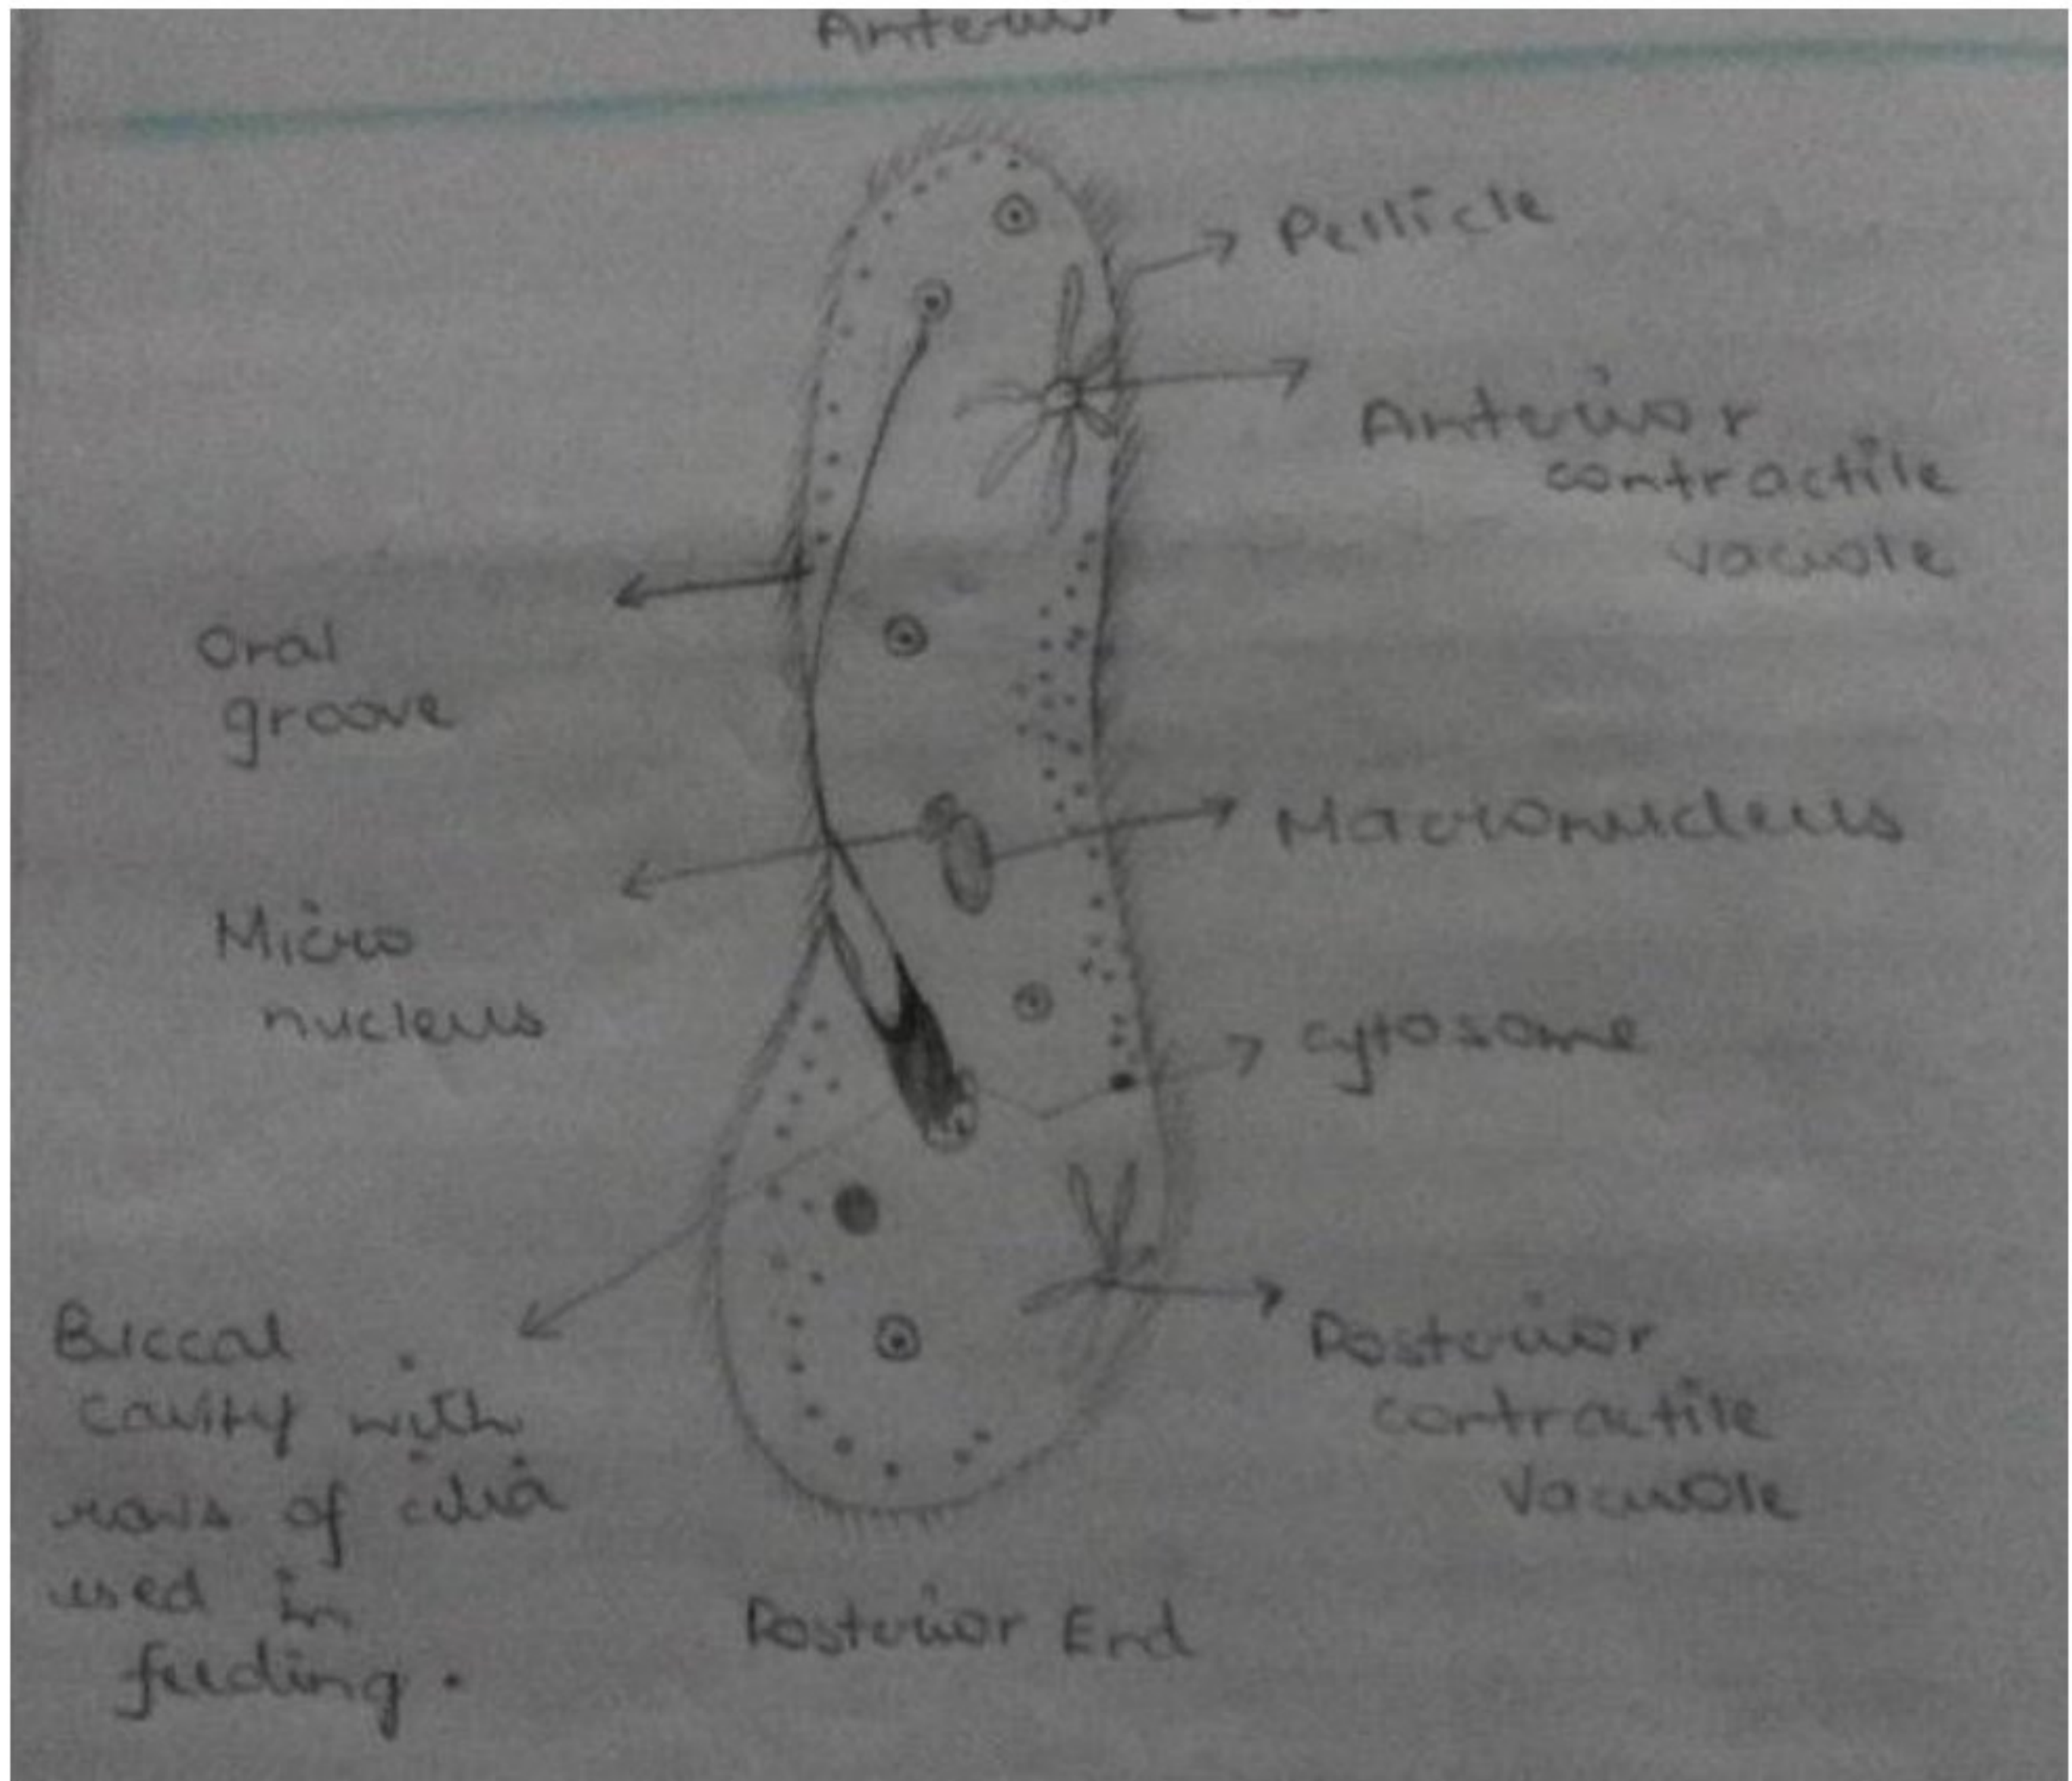 Anterior
Pellicle
Anterior
contractile
vacuole
Oral
groove
Macronucleus
Micro
nucleus
cytosome
Buccal
cavity with
rows of cilia
used in
feeding.
Posterior
contractile
vacuole
Posterior End